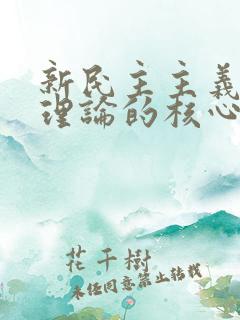 新民主主義
理論的核心
花千樹
未經同意禁止轉載